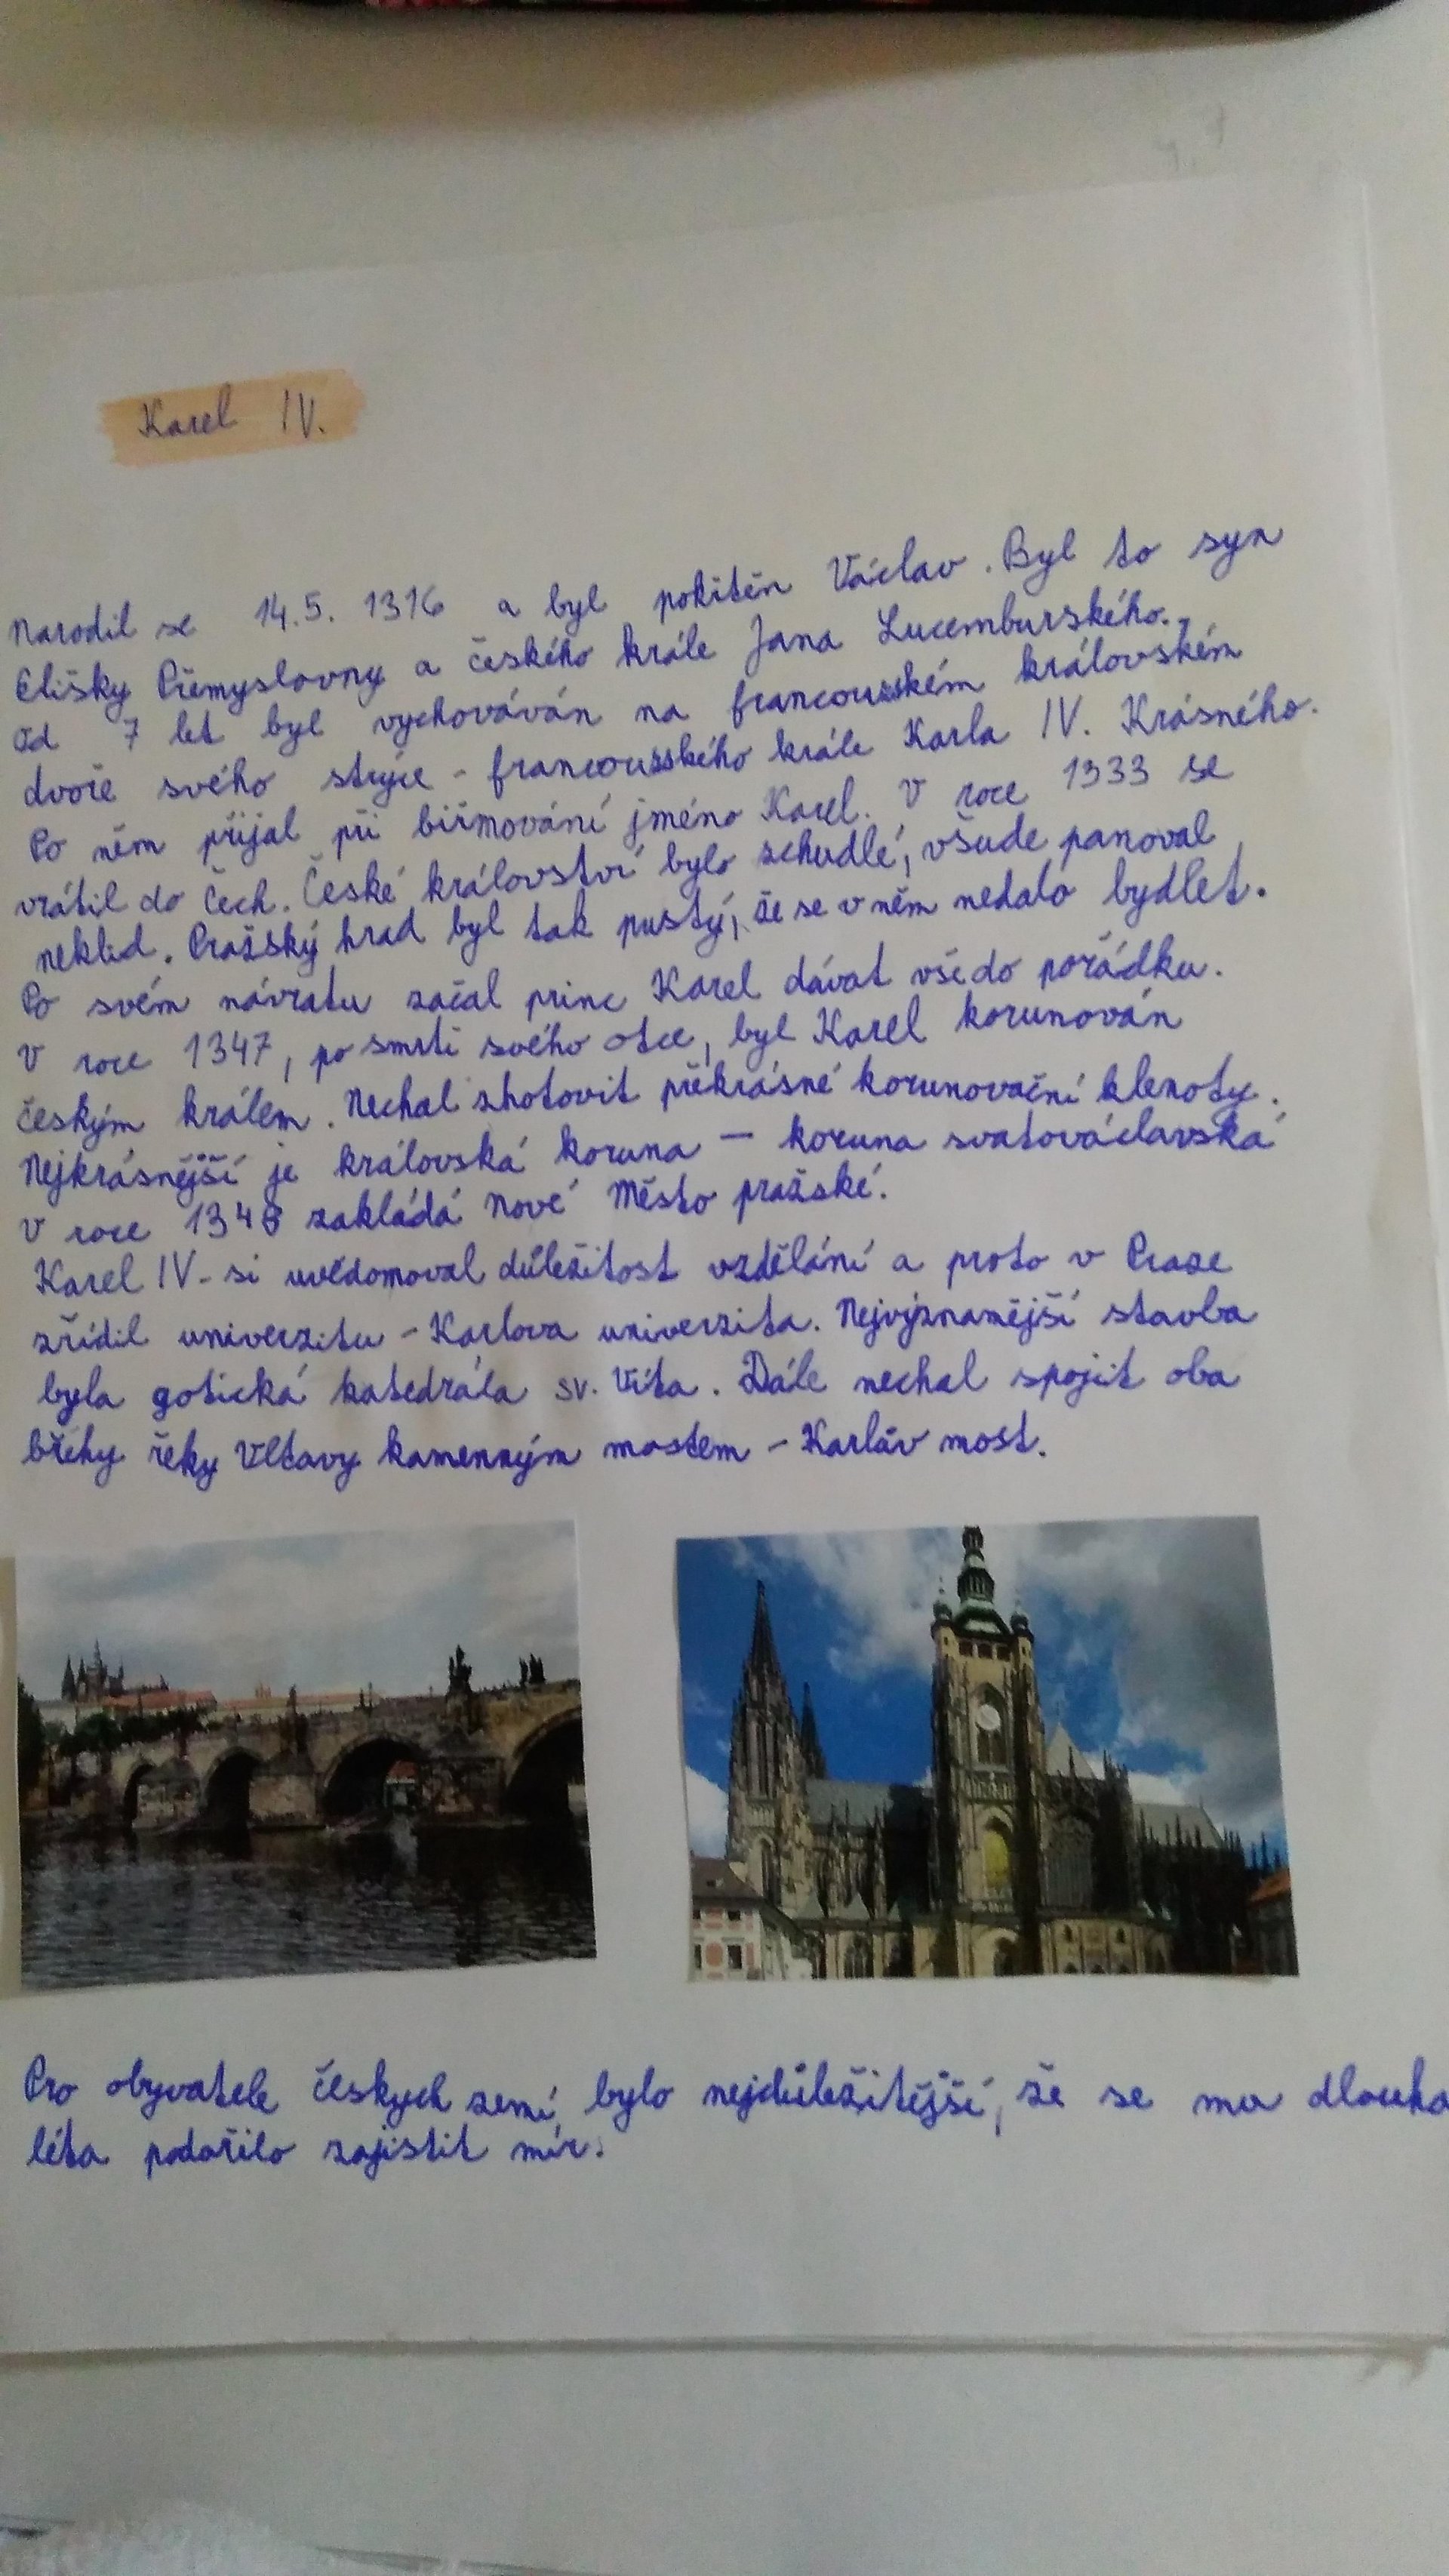 Karel IV.
Narodil se 14.5. 1316 a byl pokřtěn Václav. Byl to syn
Elišky Přemyslovny a českého krále Jana Lucemburského.
Od 7 let byl vychováván na francouzském královském
dvoře svého strýce - francouzského krále Karla IV. Krásného.
Po něm přijal při biřmování jméno Karel. V roce 1333 se
vrátil do Čech. České království bylo zchudlé, všude panoval
neklid. Pražský hrad byl tak pustý, že se v něm nedalo bydlet.
Po svém návratu začal princ Karel dávat vše do pořádku.
V roce 1347, po smrti svého otce, byl Karel korunován
českým králem. Nechal zhotovit překrásné korunovační klenoty.
Nejkrásnější je královská koruna – koruna svatováclavská
V roce 1348 zakládá Nové Město pražské.
Karel IV. si uvědomoval důležitost vzdělání a proto v Praze
zřídil univerzitu - Karlova univerzita. Nejvýznamější stavba
byla gotická katedrála sv. Víta. Dále nechal spojit oba
břehy řeky Vltavy kamenným mostem - Karlův most.
Pro obyvatele českych zemí bylo nejdůležitější, že se mu dlouha
léta podařilo zajistit mír.